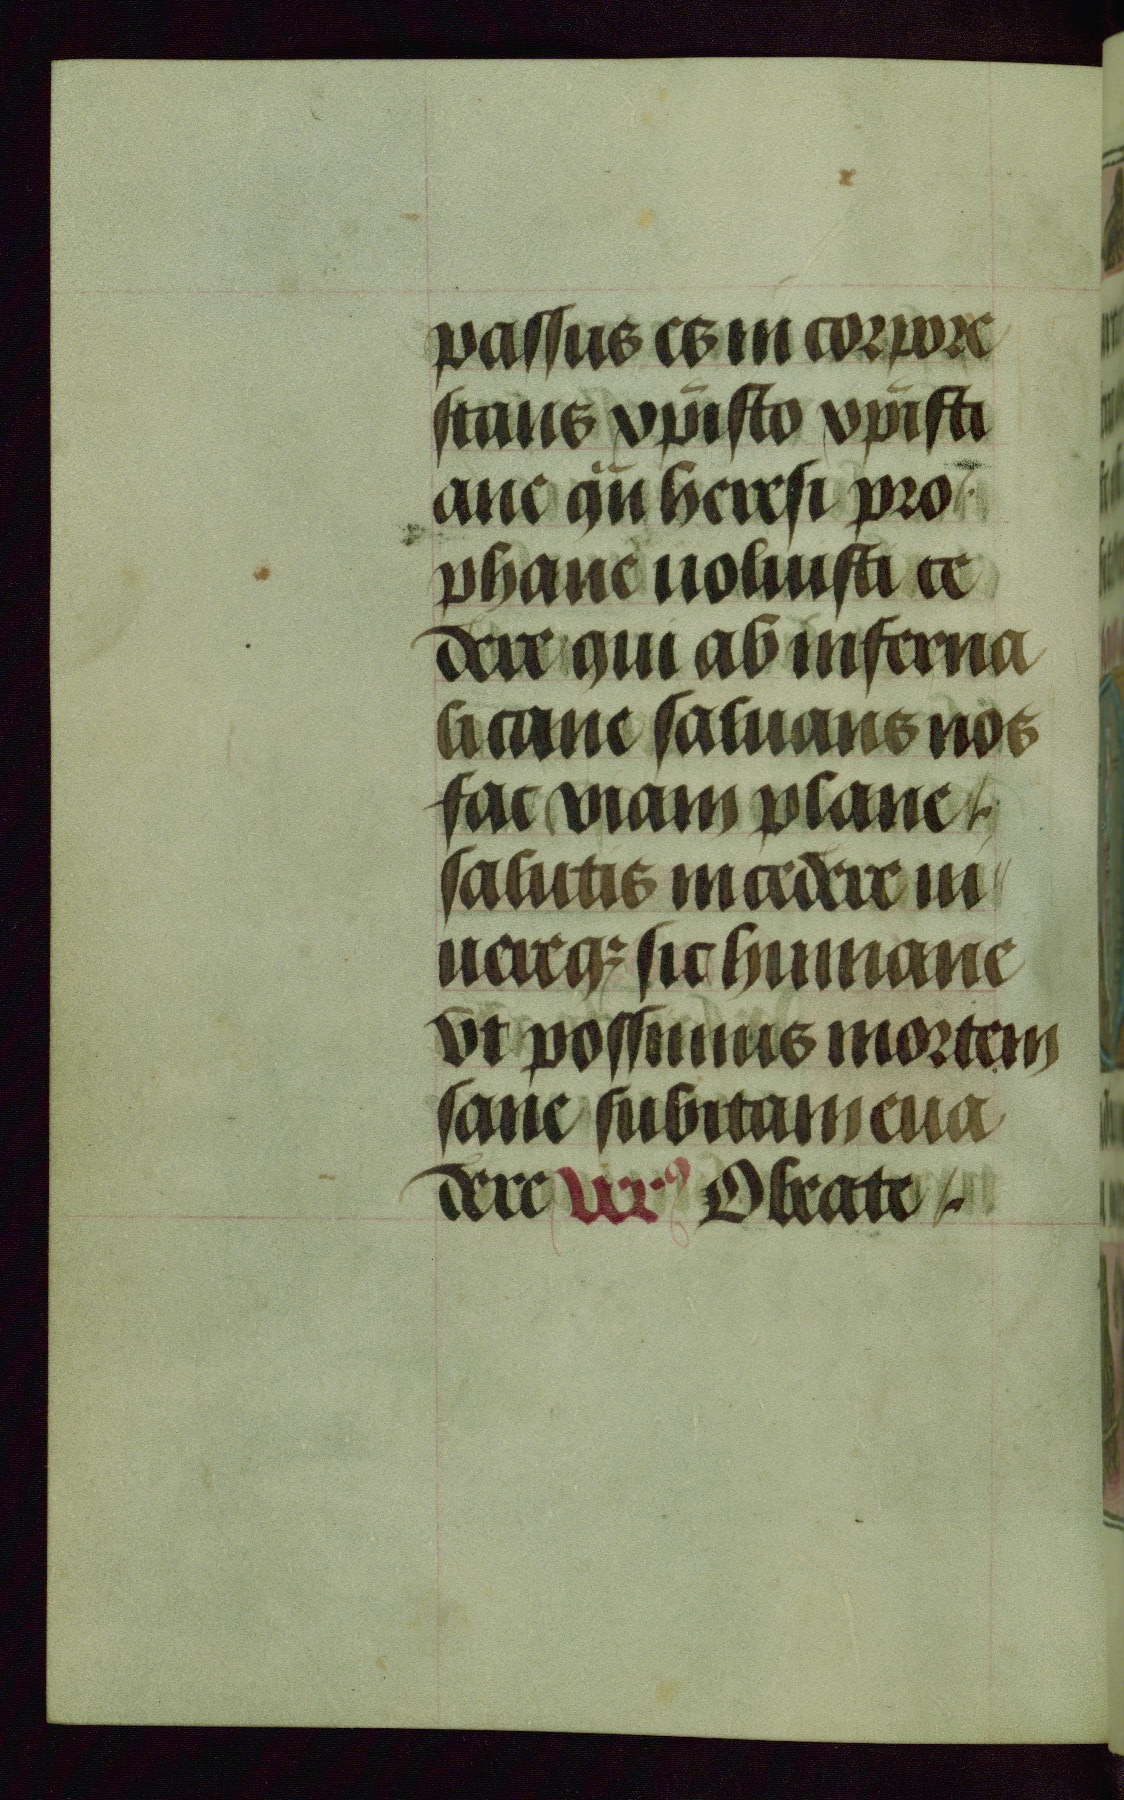 passus es in corpore
stans xp̄isto xp̄isti
ane qn̄ heresi pro
phane noluisti ce
dere qui ab inferna
li cane saluans nos
fac viam plane
salutis incedere in
uereq; sic humane
vt possumus mortem
sane subitam eua
dere Vers9 O beate